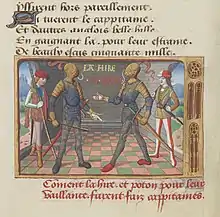 Yssirent hors pareillement
Ou furent le cappitaine
Et dautres anglois belle bille
En gaignant la pour leur estraine
De beaulx escus cinquante mille
LA HIRE
Coment la hire et poton pour leur
vaillance furent fais cappitaines